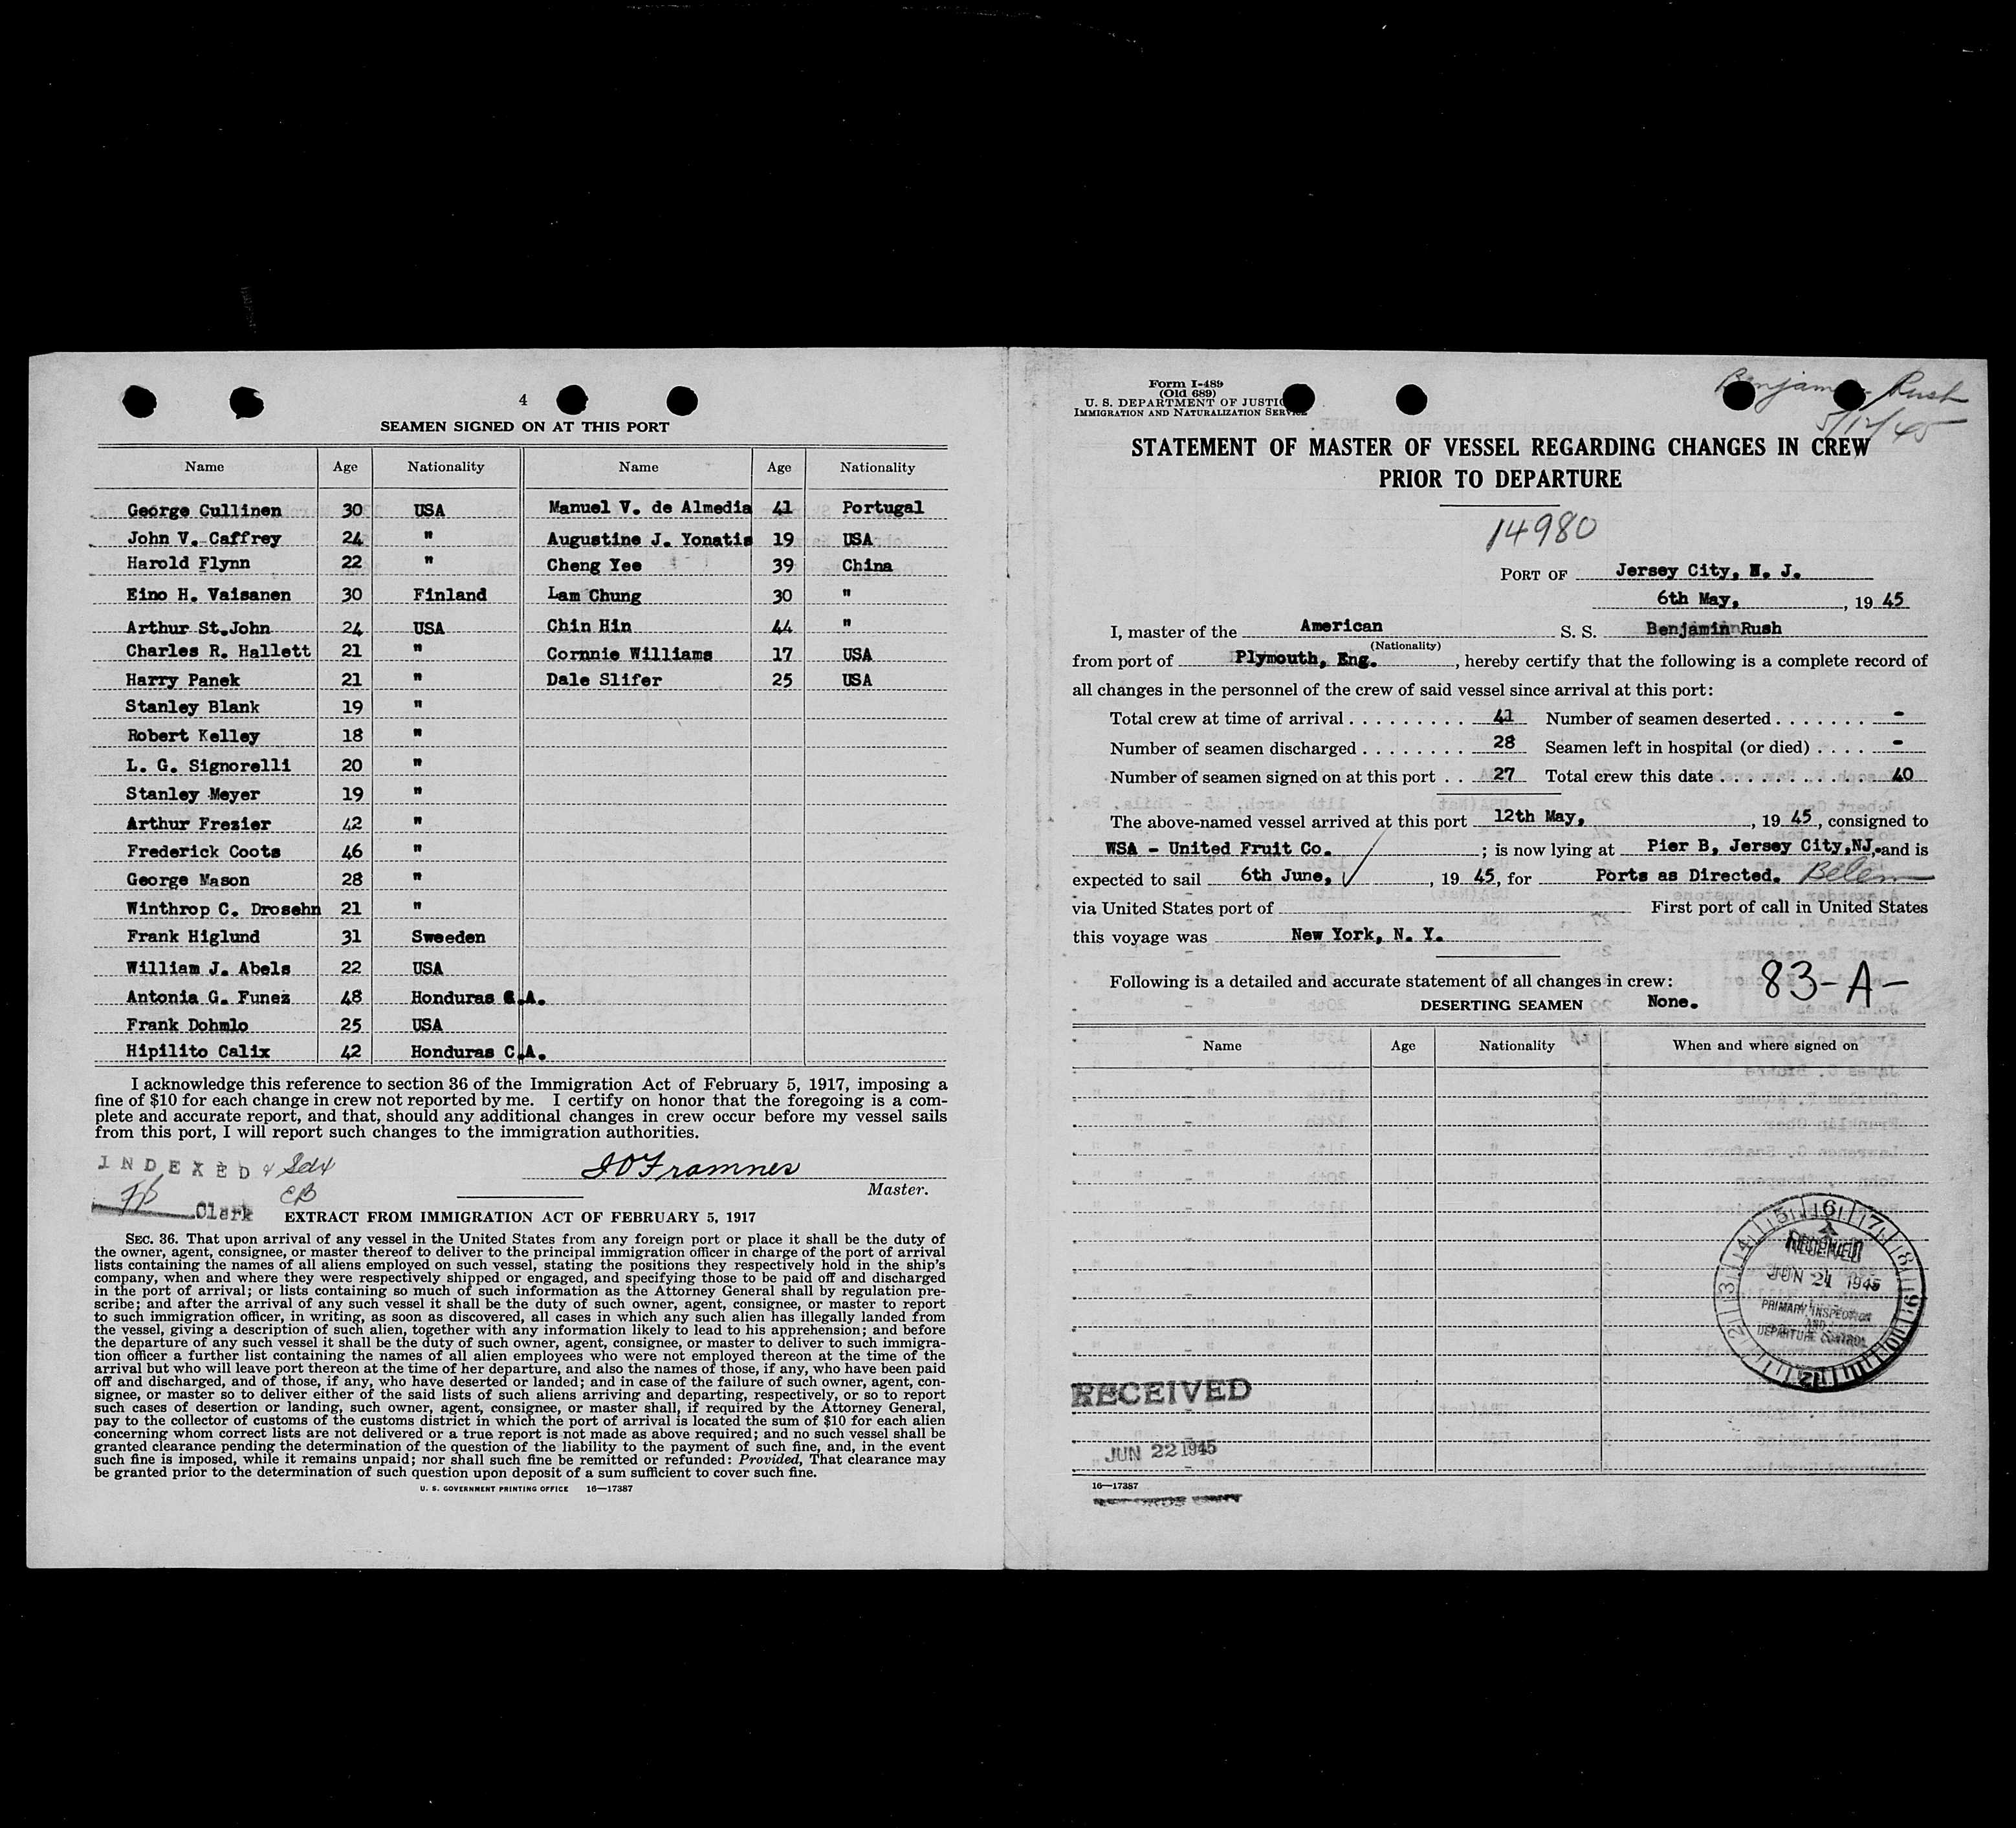 4
SEAMEN SIGNED ON AT THIS PORT
Name Age Nationality Name Age Nationality
George Cullinen 30 USA Manuel V. de Almedia 41 Portugal
John V. Caffrey 24 " Augustine J. Yonatis 19 USA
Harold Flynn 22 " Cheng Yee 39 China
Eino H. Vaisanen 30 Finland Lam Chung 30 "
Arthur St.John 24 USA Chin Hin 44 "
Charles R. Hallett 21 " Cornnie Williams 17 USA
Harry Panek 21 " Dale Slifer 25 USA
Stanley Blank 19 "
Robert Kelley 18 "
L. G. Signorelli 20 "
Stanley Meyer 19 "
Arthur Frezier 42 "
Frederick Coots 46 "
George Mason 28 "
Winthrop C. Drosehn 21 "
Frank Higlund 31 Sweeden
William J. Abels 22 USA
Antonia G. Funez 48 Honduras C.A.
Frank Dohmlo 25 USA
Hipilito Calix 42 Honduras C.A.
I acknowledge this reference to section 36 of the Immigration Act of February 5, 1917, imposing a
fine of $10 for each change in crew not reported by me. I certify on honor that the foregoing is a com-
plete and accurate report, and that, should any additional changes in crew occur before my vessel sails
from this port, I will report such changes to the immigration authorities.
INDEXED
Master.
Clerk
EXTRACT FROM IMMIGRATION ACT OF FEBRUARY 5, 1917
SEC. 36. That upon arrival of any vessel in the United States from any foreign port or place it shall be the duty of
the owner, agent, consignee, or master thereof to deliver to the principal immigration officer in charge of the port of arrival
lists containing the names of all aliens employed on such vessel, stating the positions they respectively hold in the ship's
company, when and where they were respectively shipped or engaged, and specifying those to be paid off and discharged
in the port of arrival; or lists containing so much of such information as the Attorney General shall by regulation pre-
scribe; and after the arrival of any such vessel it shall be the duty of such owner, agent, consignee, or master to report
to such immigration officer, in writing, as soon as discovered, all cases in which any such alien has illegally landed from
the vessel, giving a description of such alien, together with any information likely to lead to his apprehension; and before
the departure of any such vessel it shall be the duty of such owner, agent, consignee, or master to deliver to such immigra-
tion officer a further list containing the names of all alien employees who were not employed thereon at the time of the
arrival but who will leave port thereon at the time of her departure, and also the names of those, if any, who have been paid
off and discharged, and of those, if any, who have deserted or landed; and in case of the failure of such owner, agent, con-
signee, or master so to deliver either of the said lists of such aliens arriving and departing, respectively, or so to report
such cases of desertion or landing, such owner, agent, consignee, or master shall, if required by the Attorney General,
pay to the collector of customs of the customs district in which the port of arrival is located the sum of $10 for each alien
concerning whom correct lists are not delivered or a true report is not made as above required; and no such vessel shall be
granted clearance pending the determination of the question of the liability to the payment of such fine, and, in the event
such fine is imposed, while it remains unpaid; nor shall such fine be remitted or refunded: Provided, That clearance may
be granted prior to the determination of such question upon deposit of a sum sufficient to cover such fine.
U. S. GOVERNMENT PRINTING OFFICE 16—17387
Form I-489
(Old 689)
U. S. DEPARTMENT OF JUSTICE
IMMIGRATION AND NATURALIZATION SERVICE
Benjamin Rush
5/12/45
STATEMENT OF MASTER OF VESSEL REGARDING CHANGES IN CREW
PRIOR TO DEPARTURE
14980
PORT OF Jersey City, N. J.
6th May, , 19 45
I, master of the American S. S. Benjamin Rush
(Nationality)
from port of Plymouth, Eng. , hereby certify that the following is a complete record of
all changes in the personnel of the crew of said vessel since arrival at this port:
Total crew at time of arrival . . . . . . . . . 41 Number of seamen deserted . . . . . . . -
Number of seamen discharged . . . . . . . . 28 Seamen left in hospital (or died) . . . . -
Number of seamen signed on at this port . . 27 Total crew this date . . . . . . . . . . 40
The above-named vessel arrived at this port 12th May, , 19 45 , consigned to
WSA - United Fruit Co. ; is now lying at Pier B, Jersey City,NJ, and is
expected to sail 6th June, , 19 45, for Ports as Directed. Belem
via United States port of First port of call in United States
this voyage was New York, N. Y.
Following is a detailed and accurate statement of all changes in crew:
83-A-
DESERTING SEAMEN None.
Name Age Nationality When and where signed on
RECEIVED
JUN 21 1945
PRIMARY INSPECTION
AND
DEPARTURE CONTROL
RECEIVED
JUN 22 1945
16—17387